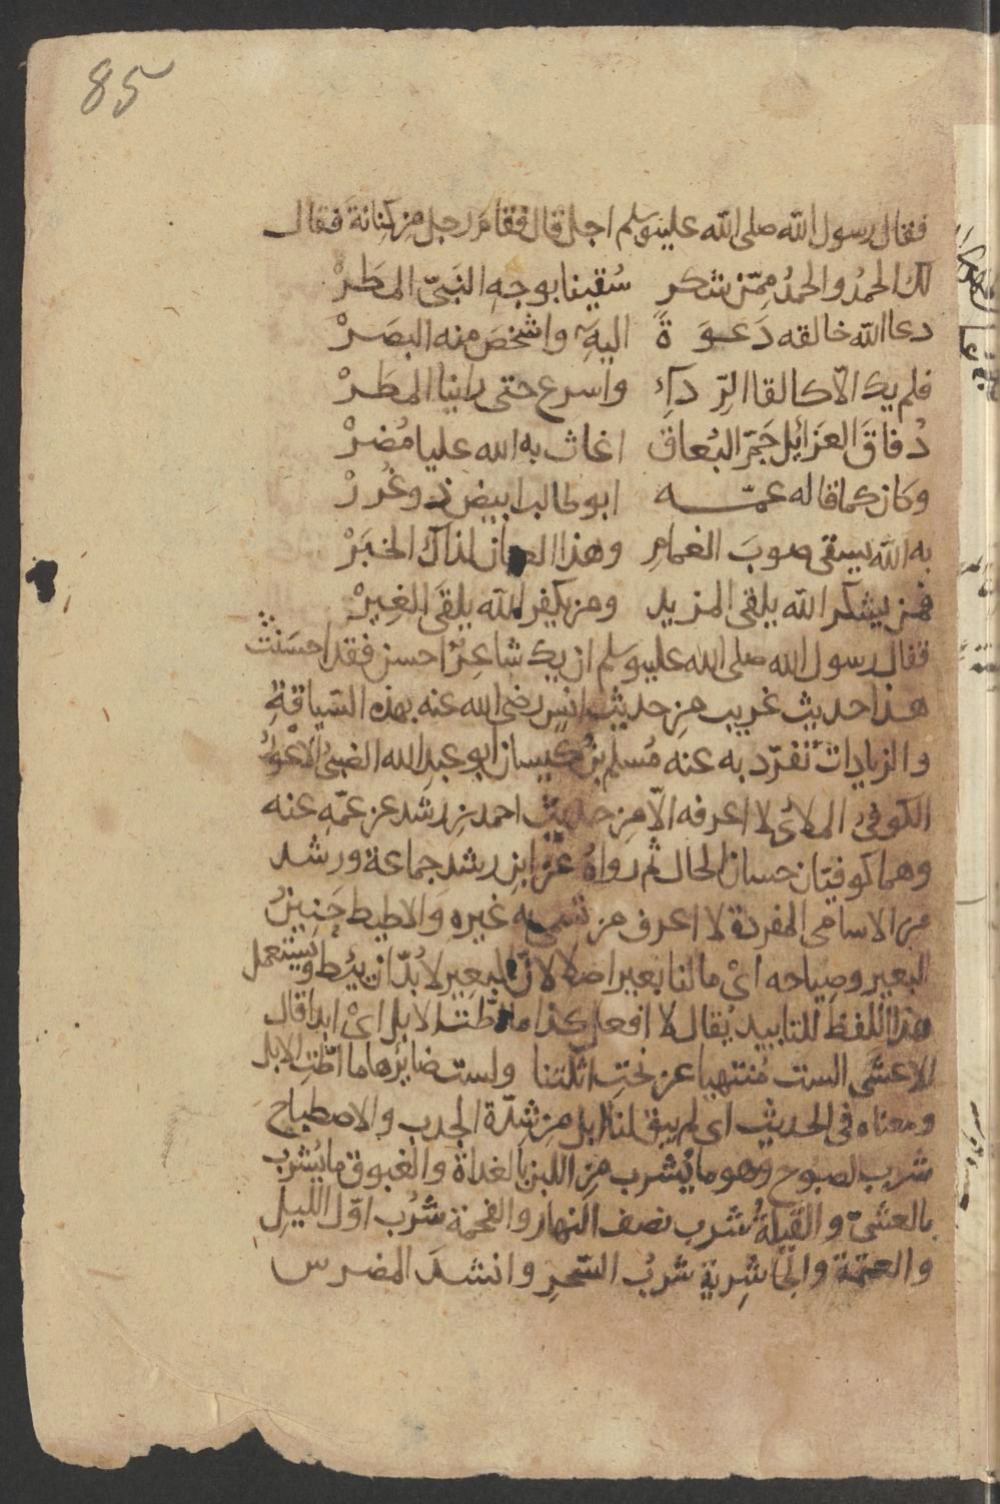 85
فقال رسول الله صلى الله عليه وسلم اجل قال فقام رجل من كنانة فقال
لك الحمد والحمد ممّن شكر سُقينا بوجه النبىّ المطَرْ
دعا الله خالقه دَعوَةً اليهِ واشخصَ منه البصَرْ
فلم يك الّا كالقا الرِّدآءِ واسرع حتى راينا المطَرْ
دُفاقَ العزائل جَمّ البُعاق اغاث به الله عليا مُضرْ
وكان كما قاله عمّه ابو طالب ابيض ذو غُررْ
به الله يسقى صوبَ الغمامِ وهذا العيان لذاك الخبَرْ
فمن يشكر الله يلقى المزيد ومن يكفر الله يلقَى الغِيرْ
فقال رسول الله صلى الله عليه وسلم ان يك شاعرٌ احسن فقد احسَنتَ
هذا حديث غريب من حديث انس رضى الله عنه بهذه السّياقةِ
والزيادات تفرّد به عنه مُسلم بنُ كيسان ابو عبد الله الضبىُ الاعورُ
الكوفىُ الملائى لا اعرفه الّا من حديث احمد بن رشد عن عمّه عنه
وهما كوفيّان حسان الحال ثم رواهُ عن ابن رشد جماعة ورشد
من الاسامى المفردة لا اعرف من تسمى به غيره والاطيط حَنِينُ
البعير وصياحه اىْ مالنا بعير اصلا لانّ البعير لا بُدّ ان يئط ويستعمل
هذا اللفظ للتابيد يُقال لا افعل كذا ما اطّت الابل اىْ ابدا قال
الاعشى الست مُنتهيا عن نحتِ اثلتنا ولست ضائرها ما اطّتِ الابل
ومعناه فى الحديث اى لم يبق لنا ابل من شِدّة الجدب والاصطباح
شرب الصبوح وهو ما يُشرب من اللبن بالغداة والغبوق ما يُشرب
بالعشىّ والقَيلةُ شرب نصف النهار والفحمة شرْبُ اوّل الليلِ
والعتمة والجاشرية شربُ السَّحرِ وانشدَ المضرس